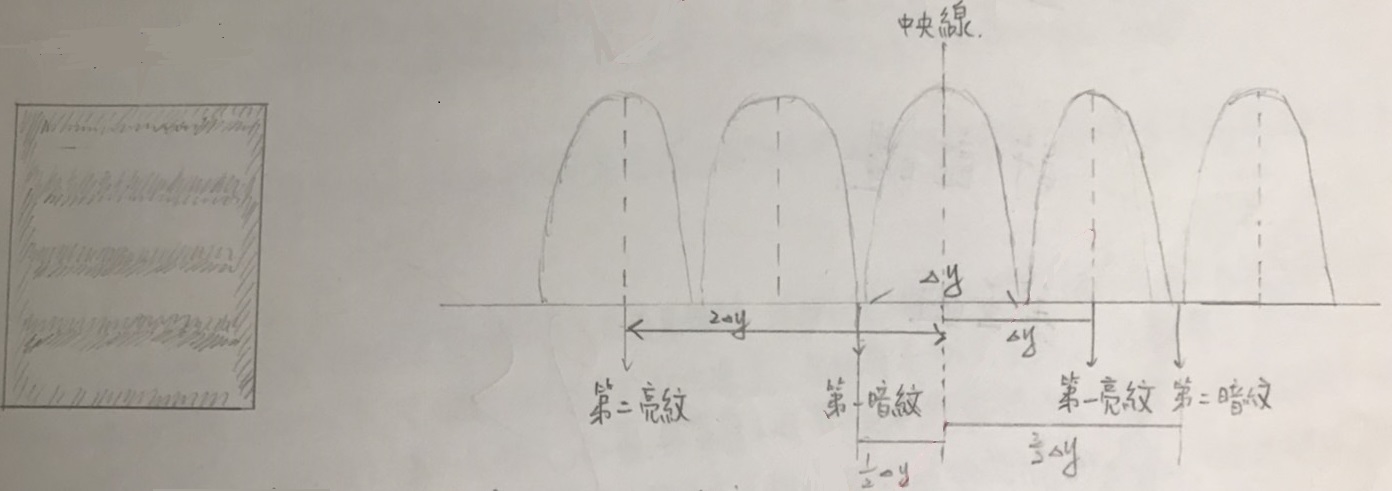 中央線.
Δy
2Δy
Δy
第二亮紋
第一暗紋
第一亮紋
第二暗紋
1/2 Δy
3/2 Δy